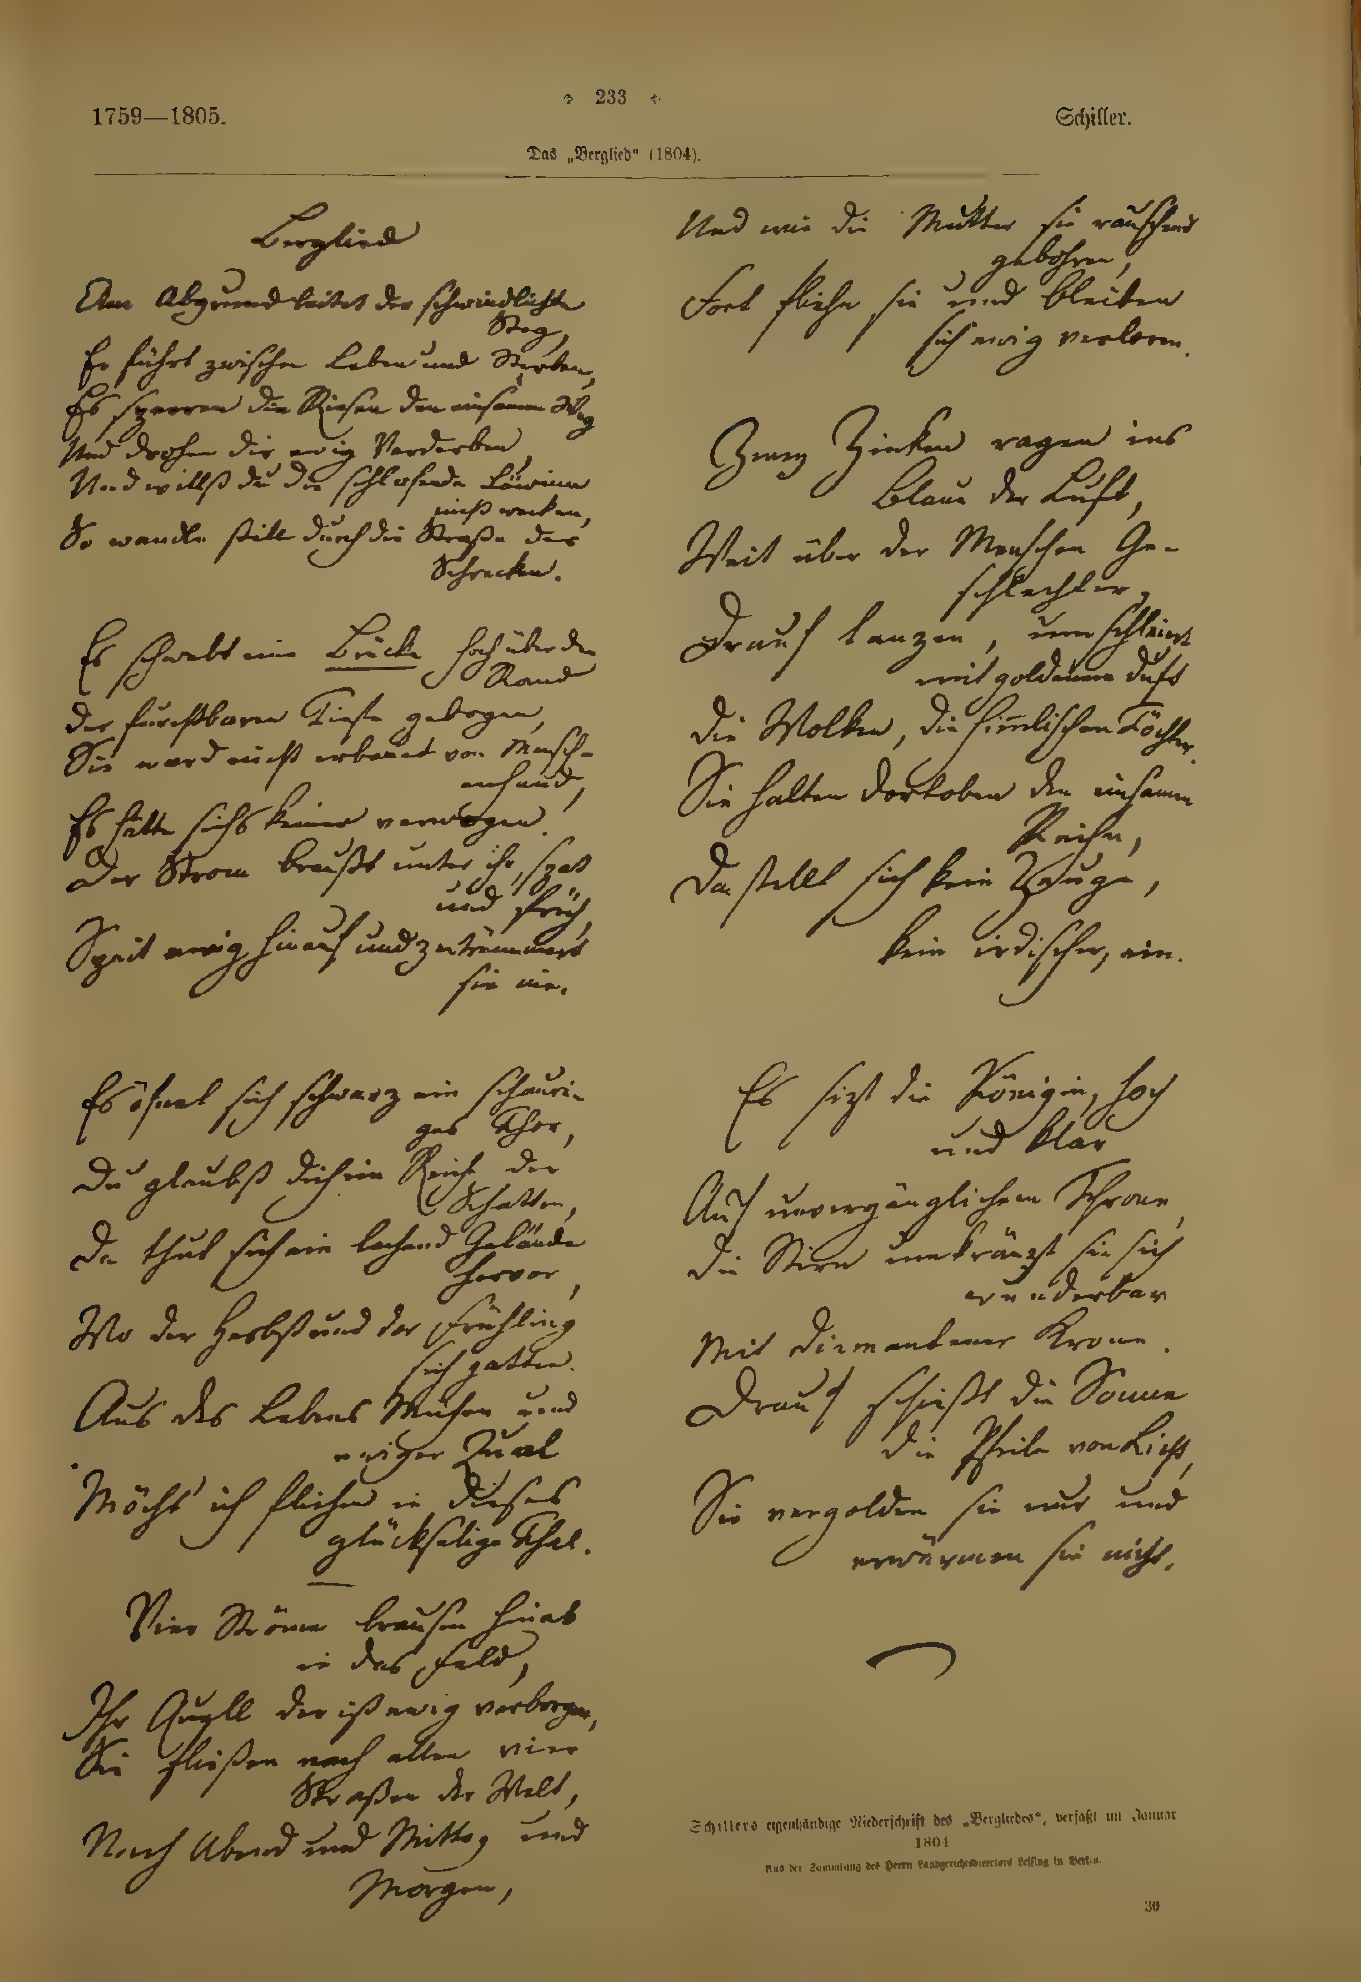 1759—1805.
233
Schiller.
Das „Berglied“ (1804).
Berglied
Am Abgrund leitet der schwindlichte
Steg,
Er führt zwischen Leben und Sterben,
Es sperren die Riesen den einsamen Weg
Und drohen dir ewig Verderben,
Und willst du die schlafende Löwinn
nicht wecken,
So wandle still durch die Straße der
Schrecken.
Es schwebt eine Brücke hoch über den
Rand
der furchtbaren Tiefe gebogen,
Sie ward nicht erbauet von Mensch-
enhand,
Es hätte sichs keiner verwogen.
Der Strom braußt unter ihr spat
und früh,
Speit ewig hinauf und zertrümmert
sie nie.
Es öfnet sich schwarz ein schauri-
ges Thor,
Du glaubst dich im Reiche der
Schatten,
Da thut sich ein lachend Gelände
hervor,
Wo der Herbst und der Frühling
sich gatten.
Aus des Lebens Mühen und
ewiger Qual
Möcht ich fliehen in dieses
glückselige Thal.
Vier Ströme brausen hinab
in das Feld,
Ihr Quell der ist ewig verborgen,
Sie fließen nach allen vier
Straßen der Welt,
Nach Abend und Mittag und
Morgen,
Und wie die Mutter sie rauschend
gebohren,
Fort fliehn sie und bleiben
sich ewig verloren.
Zwey Zinken ragen ins
Blaue der Luft,
Weit über der Menschen Ge-
schlechter,
Drauf tanzen, umschleiert
mit goldenem Duft
die Wolken, die himmlischen Töchter.
Sie halten dortoben den einsamen
Reihn,
Da stellt sich kein Zeuge,
kein irdischer, ein.
Es sizt die Königin, hoch
und klar
Auf unvergänglichem Throne,
die Stirn umkränzt sie sich
wunderbar
Mit diamantener Krone.
Drauf schießt die Sonne
die Pfeile von Licht,
Sie vergolden sie nur und
erwärmen sie nicht.
Schillers eigenhändige Niederschrift des „Bergliedes“, verfaßt im Januar
1804
Aus der Sammlung des Herrn Landgerichtsdirectors Lessing in Berlin.
30